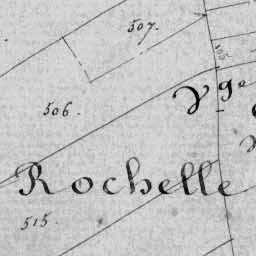 507.
506.
Vge
Rochelle
515.